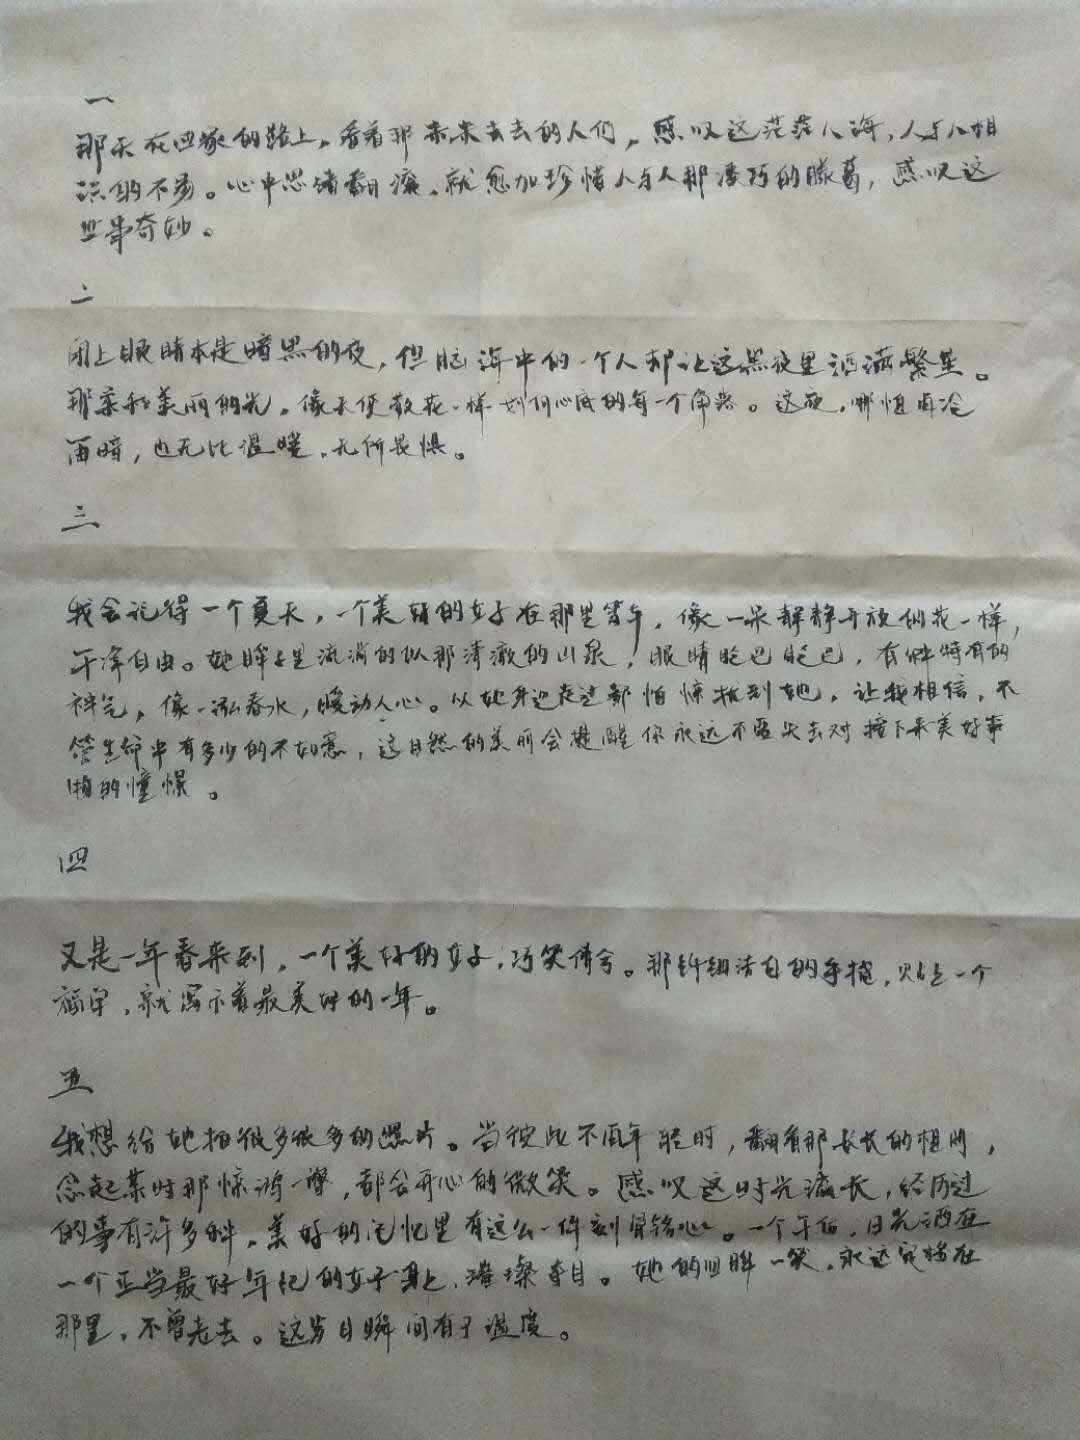 一
那天在回家的路上，看着那来来去去的人们，感叹这茫茫人海，人与人相
识的不易。心中思绪翻滚，就愈加珍惜人与人那凑巧的朦胧，感叹这
世事奇妙。
二
闭上眼睛本是暗黑的夜，但脑海中的一个人却让这黑夜里洒满繁星。
那柔和美丽的光，像天使散花一样 心底的每一个角落。这夜，哪怕再冷
再暗，也无比温暖，无所畏惧。
三
我会记得一个夏天，一个美好的女子在那里等车，像一朵静静开放的花一样，
干净自由。她眸子里流淌的似那清澈的山泉，眼睛眨巴眨巴，有种特有的
神气，像一泓春水，暖动人心。从她身边走过都怕惊扰到她，让我相信，不
管生命中有多少的不如意，这自然的美丽会提醒你永远不要失去对接下来美好事
物的憧憬。
四
又是一年春来到，一个美好的女子，巧笑倩兮。那纤细洁白的手指，贴上一个
福字，就写示着最美好的一年。
五
我想给她拍很多很多的照片。当彼此不再年轻时，翻看那长长的相册，
念起某时那惊鸿一瞥，都会开心的微笑。感叹这时光漫长，经历过
的事有许多种，美好的记忆里有这么一件刻骨铭心。一个午后，日光洒在
一个正当最好年纪的女子身上，璀璨夺目。她的回眸一笑，永远定格在
那里，不曾老去。这岁月瞬间有了温度。